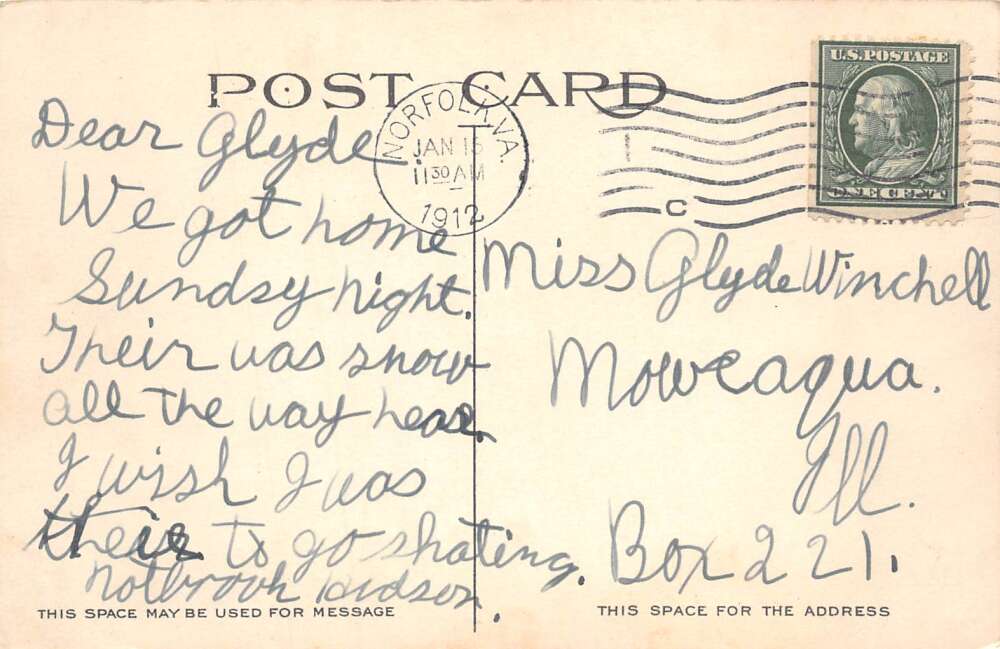 POST CARD
NORFOLK, VA.
JAN 15
11 30 AM
1912
C
U.S. POSTAGE
ONE CENT
Dear Glyde
We got home
Sundsy night.
Their was snow
all the way hear.
I wish I was
their to go skating.
Holbrook Hudson.
THIS SPACE MAY BE USED FOR MESSAGE
Miss Glyde Winchell
Moweaqua.
Ill.
Box 221.
THIS SPACE FOR THE ADDRESS